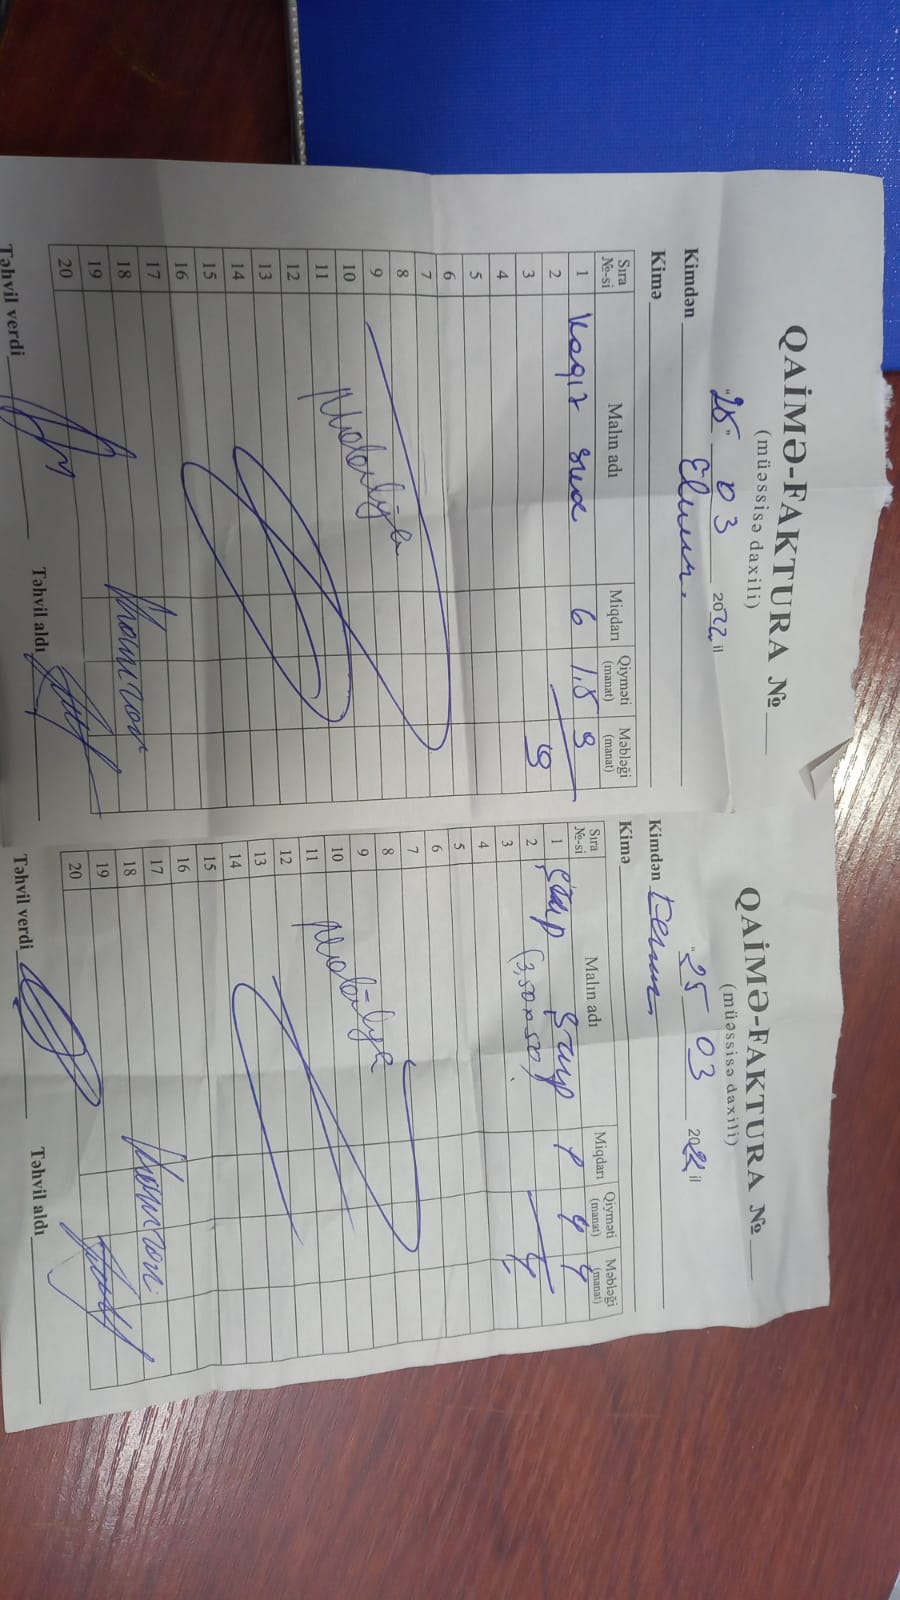 QAİMƏ-FAKTURA №
(müəssisə daxili)
"25" 03 2022 il
Kimdən Elnur.
Kimə
Sıra №-si Malın adı Miqdarı Qiyməti (manat) Məbləği (manat)
1 Kağız 6 1,5 9
2
3 9
4
5
6
7
8
9
10
11
12
13
14
15
16
17
18
19
20
Təhvil verdi Təhvil aldı
QAİMƏ-FAKTURA №
(müəssisə daxili)
"25 03 2022 il
Kimdən
Kimə
Sıra №-si Malın adı Miqdarı Qiyməti (manat) Məbləği (manat)
1 4 4
2 (3,50 x 50)
3 4
4
5
6
7
8
9
10
11
12
13
14
15
16
17
18
19
20
Təhvil verdi Təhvil aldı